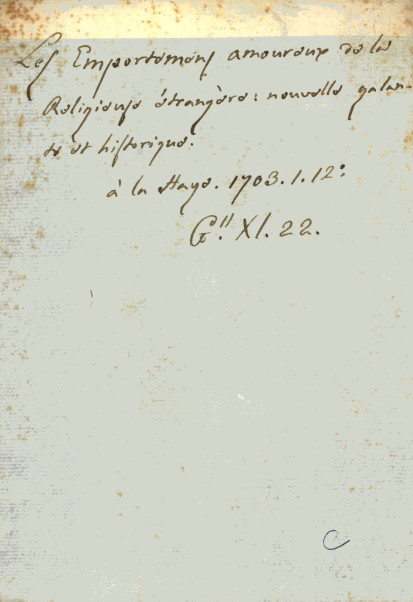 Les Emportemens amoureux de la
Religieuse étrangère: nouvelle galan-
te et historique.
à la Haye. 1703. 1. 12º
G". XI. 22.
C